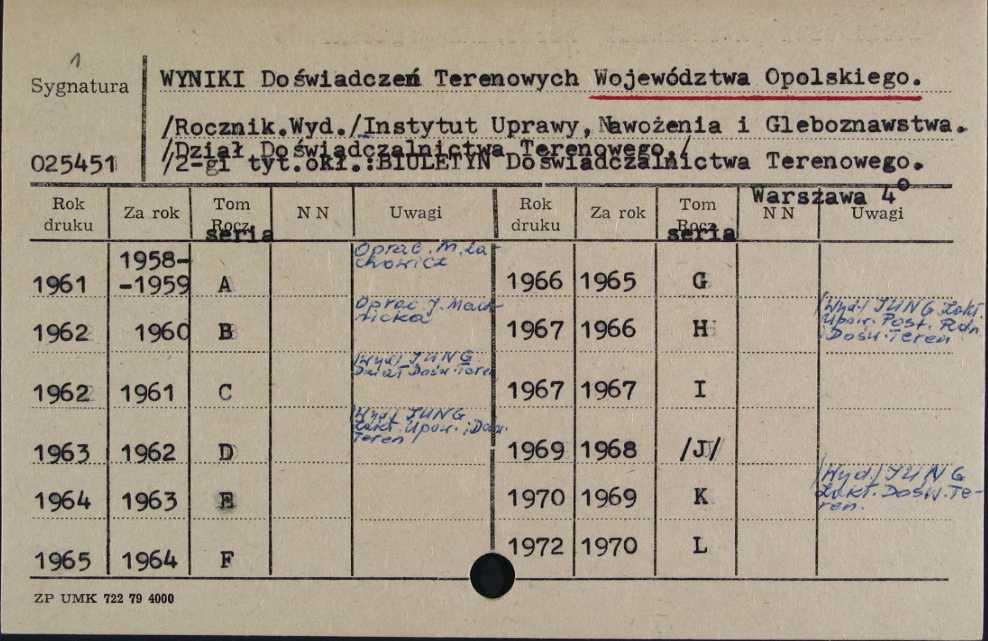 1
Sygnatura
WYNIKI Doświadczeń Terenowych Województwa Opolskiego.
/Rocznik.Wyd./Instytut Uprawy, Nawożenia i Gleboznawstwa.
/Dział Doświadczalnictwa Terenowego./
025451 /2-gi tyt.okł.:BIULETYN Doświadczalnictwa Terenowego.
Warszawa 4°
Rok druku Za rok Tom Rocz. seria NN Uwagi Rok druku Za rok Tom Rocz. seria NN Uwagi
1961 1958-
-1959 A Oprac. M. Ła-
chowicz
1966 1965 G
1962 1960 B Oprac J.
1967 1966 H /Wyd./ JUNG Zakł.
Upow. Post. Roln
i Dośw. Teren
1962 1961 C /Wyd./ JUNG
Dział Dośw. Teren
1967 1967 I
1963 1962 D /Wyd./ JUNG
Zakł. Upow. i Dośw.
Teren/
1969 1968 /J/
1964 1963 E
1970 1969 K /Wyd./ JUNG
Zakł. Dośw. Te-
ren.
1965 1964 F
1972 1970 L
ZP UMK 722 79 4000